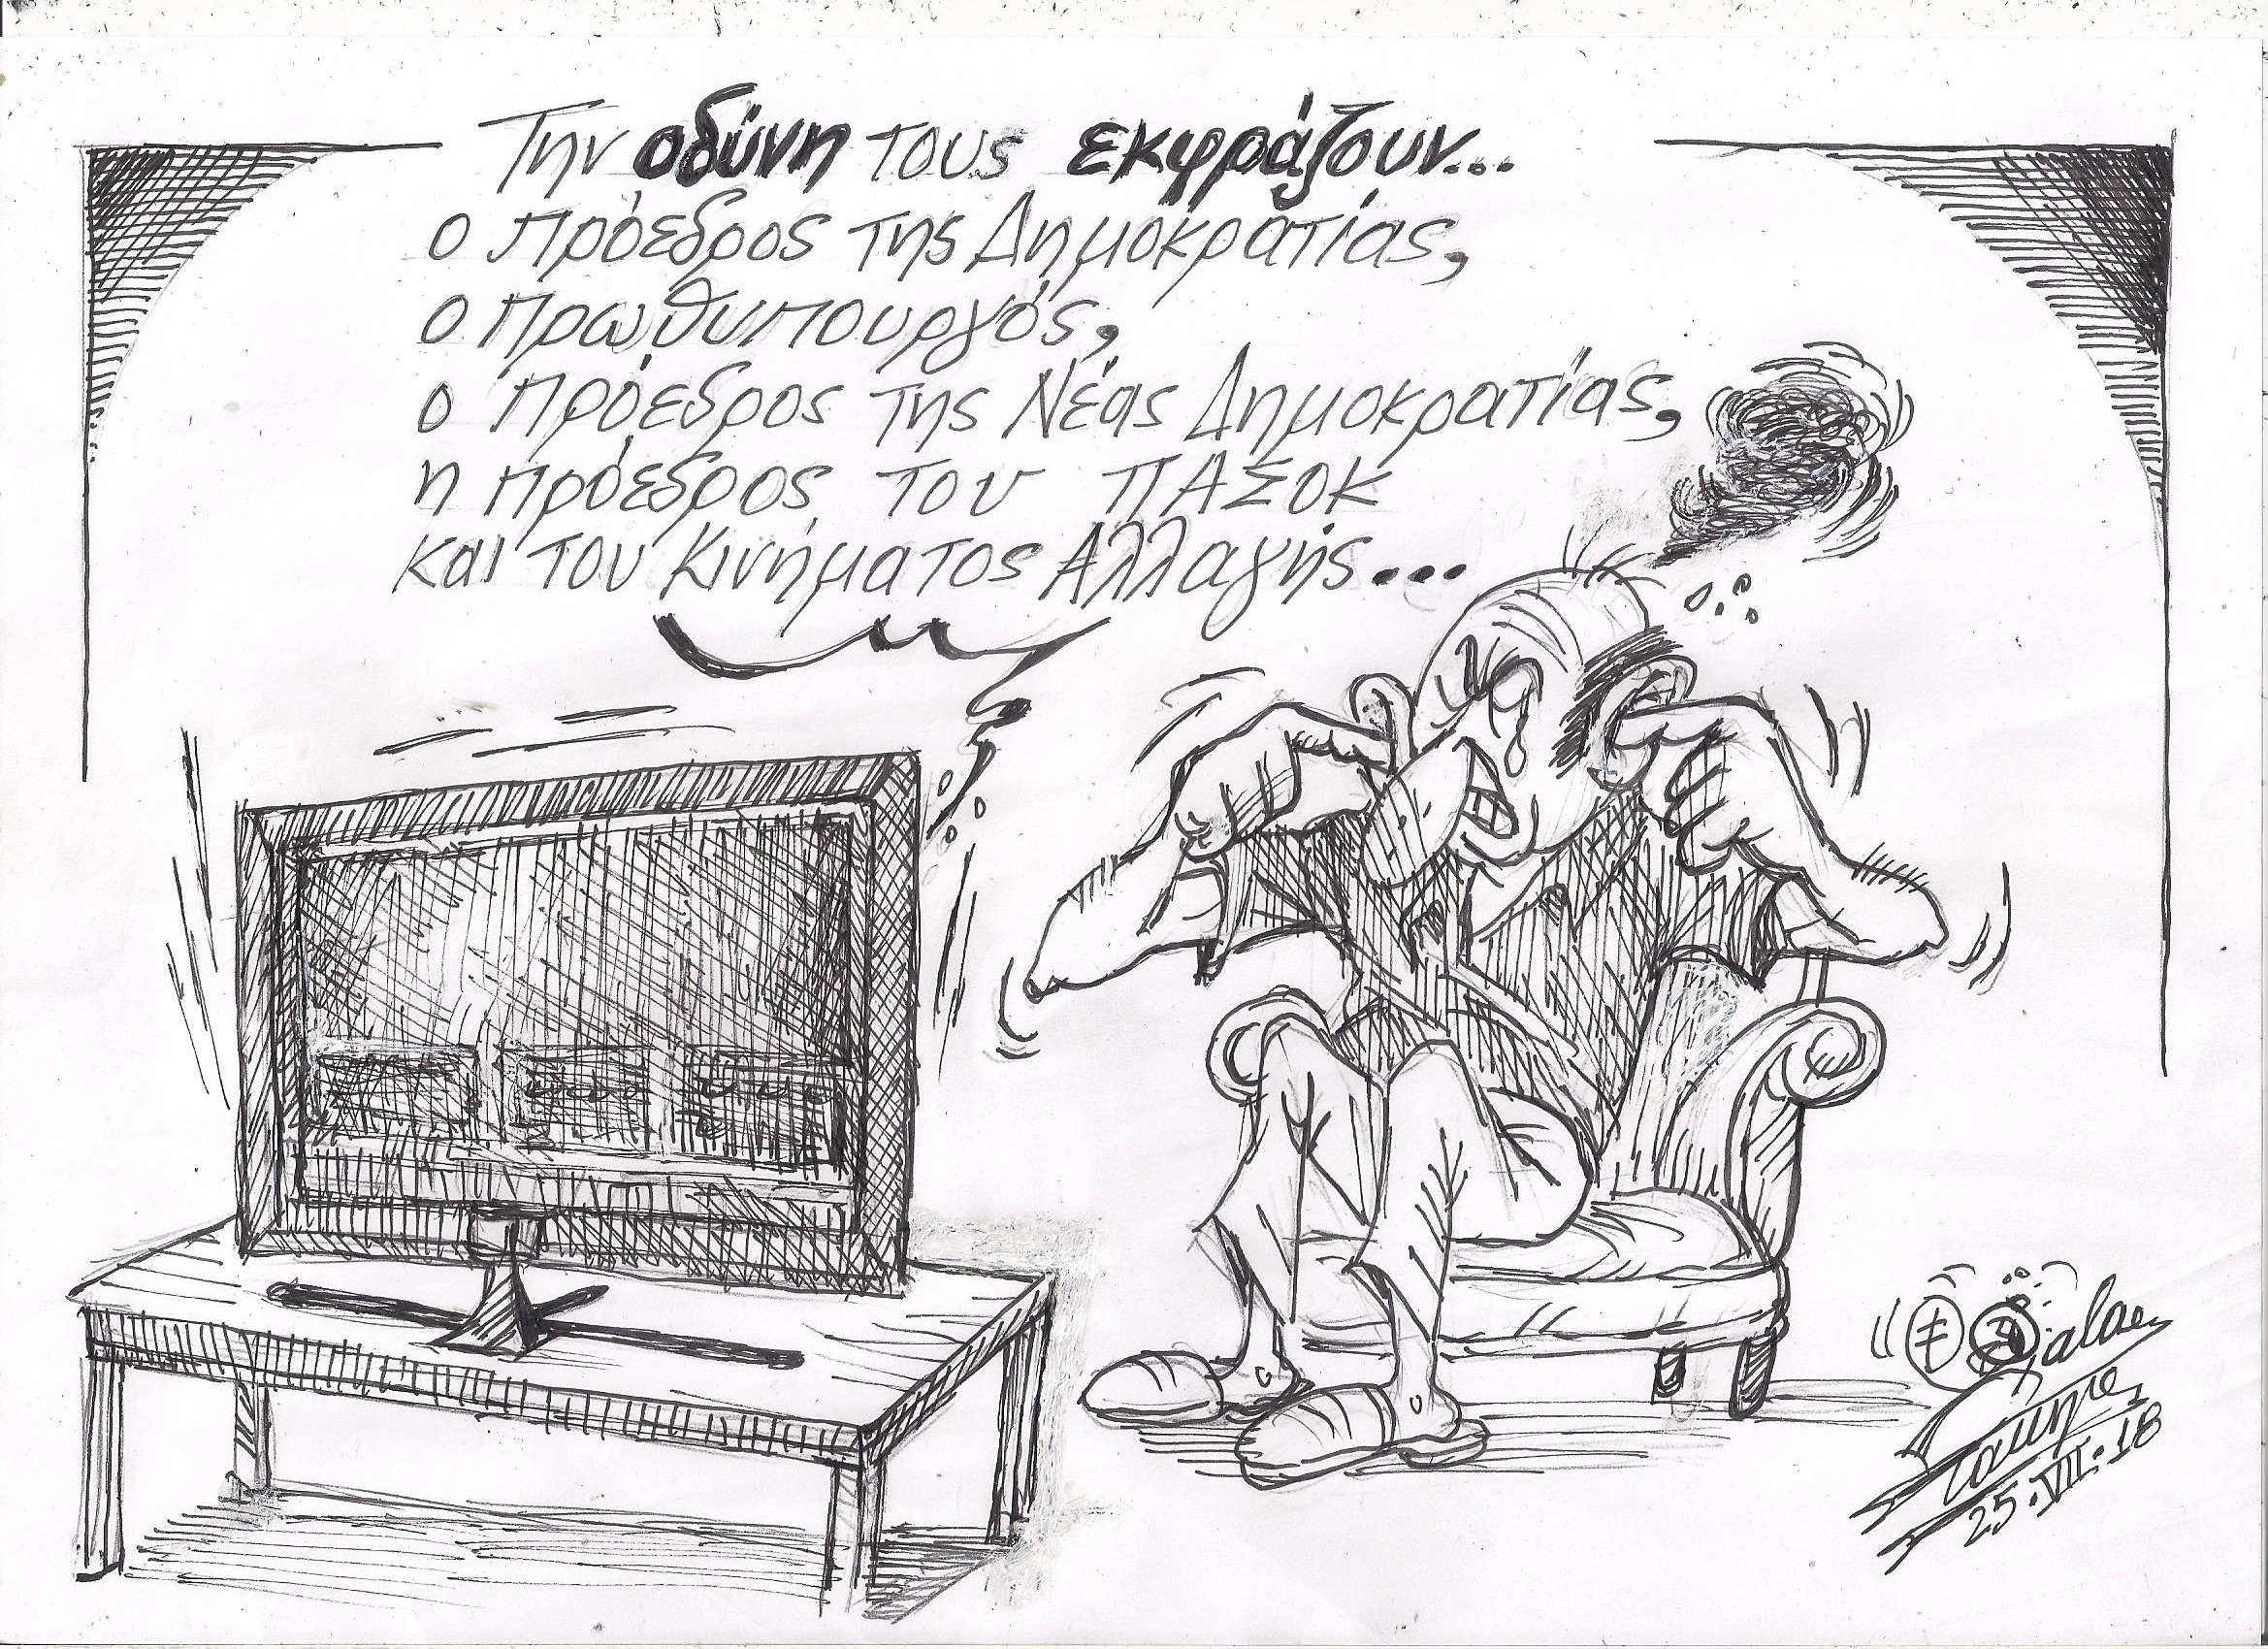 Την οδύνη τους εκφράζουν...
ο πρόεδρος της Δημοκρατίας,
ο πρωθυπουργός,
ο πρόεδρος της Νέας Δημοκρατίας,
η πρόεδρος του ΠΑΣΟΚ
και του Κινήματος Αλλαγής...
25.VII.18